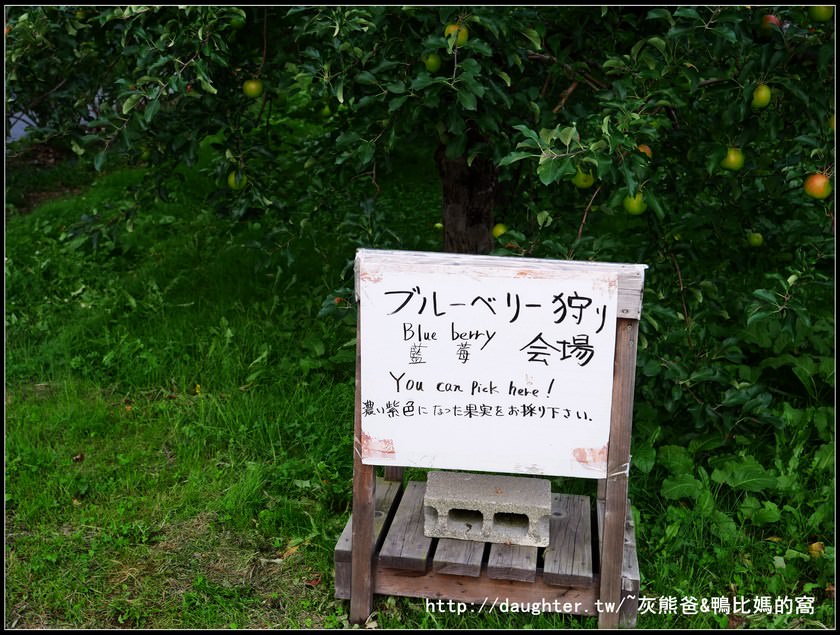 ブルーベリー狩り
Blue berry
藍 莓 会場
You can pick here!
濃い紫色になった果実をお採り下さい.
http://daughter.tw/~灰熊爸&鴨比媽的窩